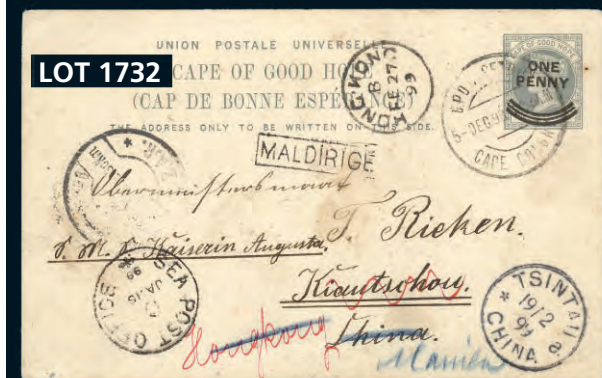 LOT 1732
UNION POSTALE UNIVERSELLE
CAPE OF GOOD HOPE
(CAP DE BONNE ESPÉRANCE)
THE ADDRESS ONLY TO BE WRITTEN ON THIS SIDE.
CAPE OF GOOD HOPE
ONE
PENNY
HONG KONG
B
DE 27
99
5-DEC 9
CAPE COLONY
MALDIRIGÉ
Obermeistersmaat
T. Rieken.
S. M. S. Kaiserin Augusta.
Kiautschou.
China.
Hongkong
Manila
SEA POST OFFICE
JA 15
99
TSINTAU
19 12
99
CHINA